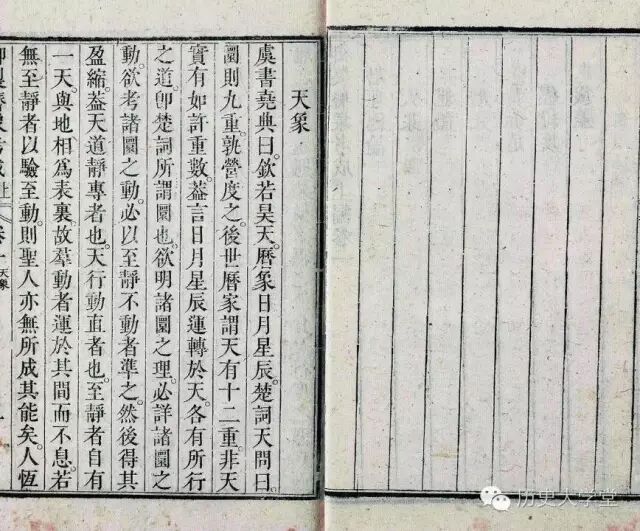 天象
虞書堯典曰。欽若昊天。曆象日月星辰。楚詞天問曰。
圜則九重。孰營度之。後世曆家謂天有十二重。非天
實有如許重數。葢言日月星辰運轉於天。各有所行
之道。卽楚詞所謂圜也。欲明諸圜之理。必詳諸圜之
動。欲考諸圜之動。必以至靜不動者準之。然後得其
盈縮。葢天道靜專者也。天行動直者也。至靜者自有
一天。與地相為表裏。故羣動者運於其間而不息。若
無至靜者以驗至動。則聖人亦無所成其能矣。人恆
天象
历史大学堂